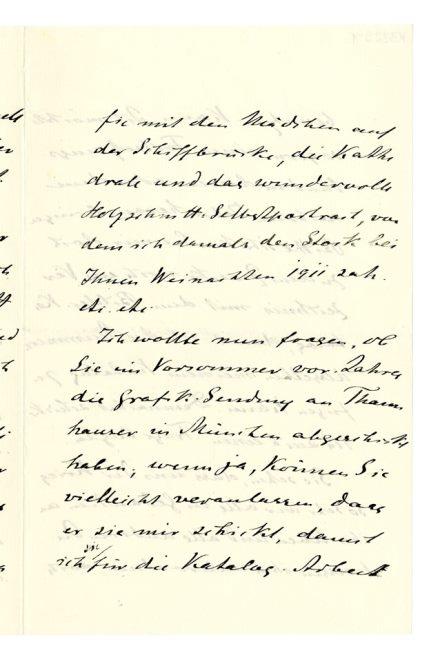 sie mit den Mädchen auf
der Schiffbrücke, die Kathe
drale und das wundervolle
Holzschnitt-Selbstportrait, von
dem ich damals den Stock bei
Ihnen Weinachten 1911 sah.
etc. etc.
Ich wollte nun fragen, ob
Sie im Vorsommer vor. Jahres
die Grafik-Sendung an Thann
hauser in München abgeschickt
haben, wenn ja, können Sie
vielleicht veranlassen, dass
er sie mir schickt, damit
ich sie für die Katalog-Arbeit